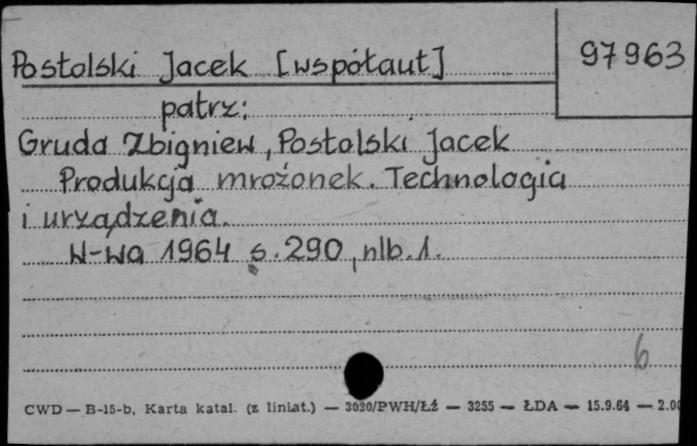 Postolski Jacek [współaut]
97963
patrz:
Gruda Zbigniew, Postolski Jacek
Produkcja mrożonek. Technologia
i urządzenia.
W-wa 1964 s. 290, nlb. 1.
6
CWD — B-15-b, Karta katal. (z liniat.) — 3020/PWH/ŁŹ — 3255 — ŁDA — 15.9.64 — 2.00